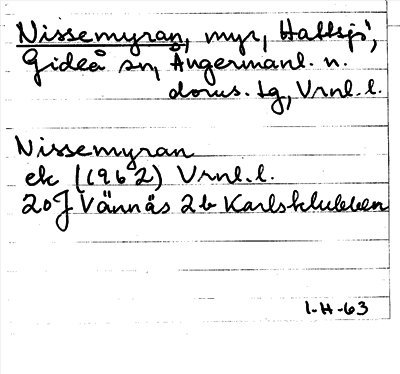 Nissemyran, myr, Hattsjö,
Gideå sn, Ångermanl. n.
doms. tg, Vrnl. l.
Nissemyran
ek (1962) Vrnl. l.
20J Vännäs 2b Karlsklubben
1-H-63